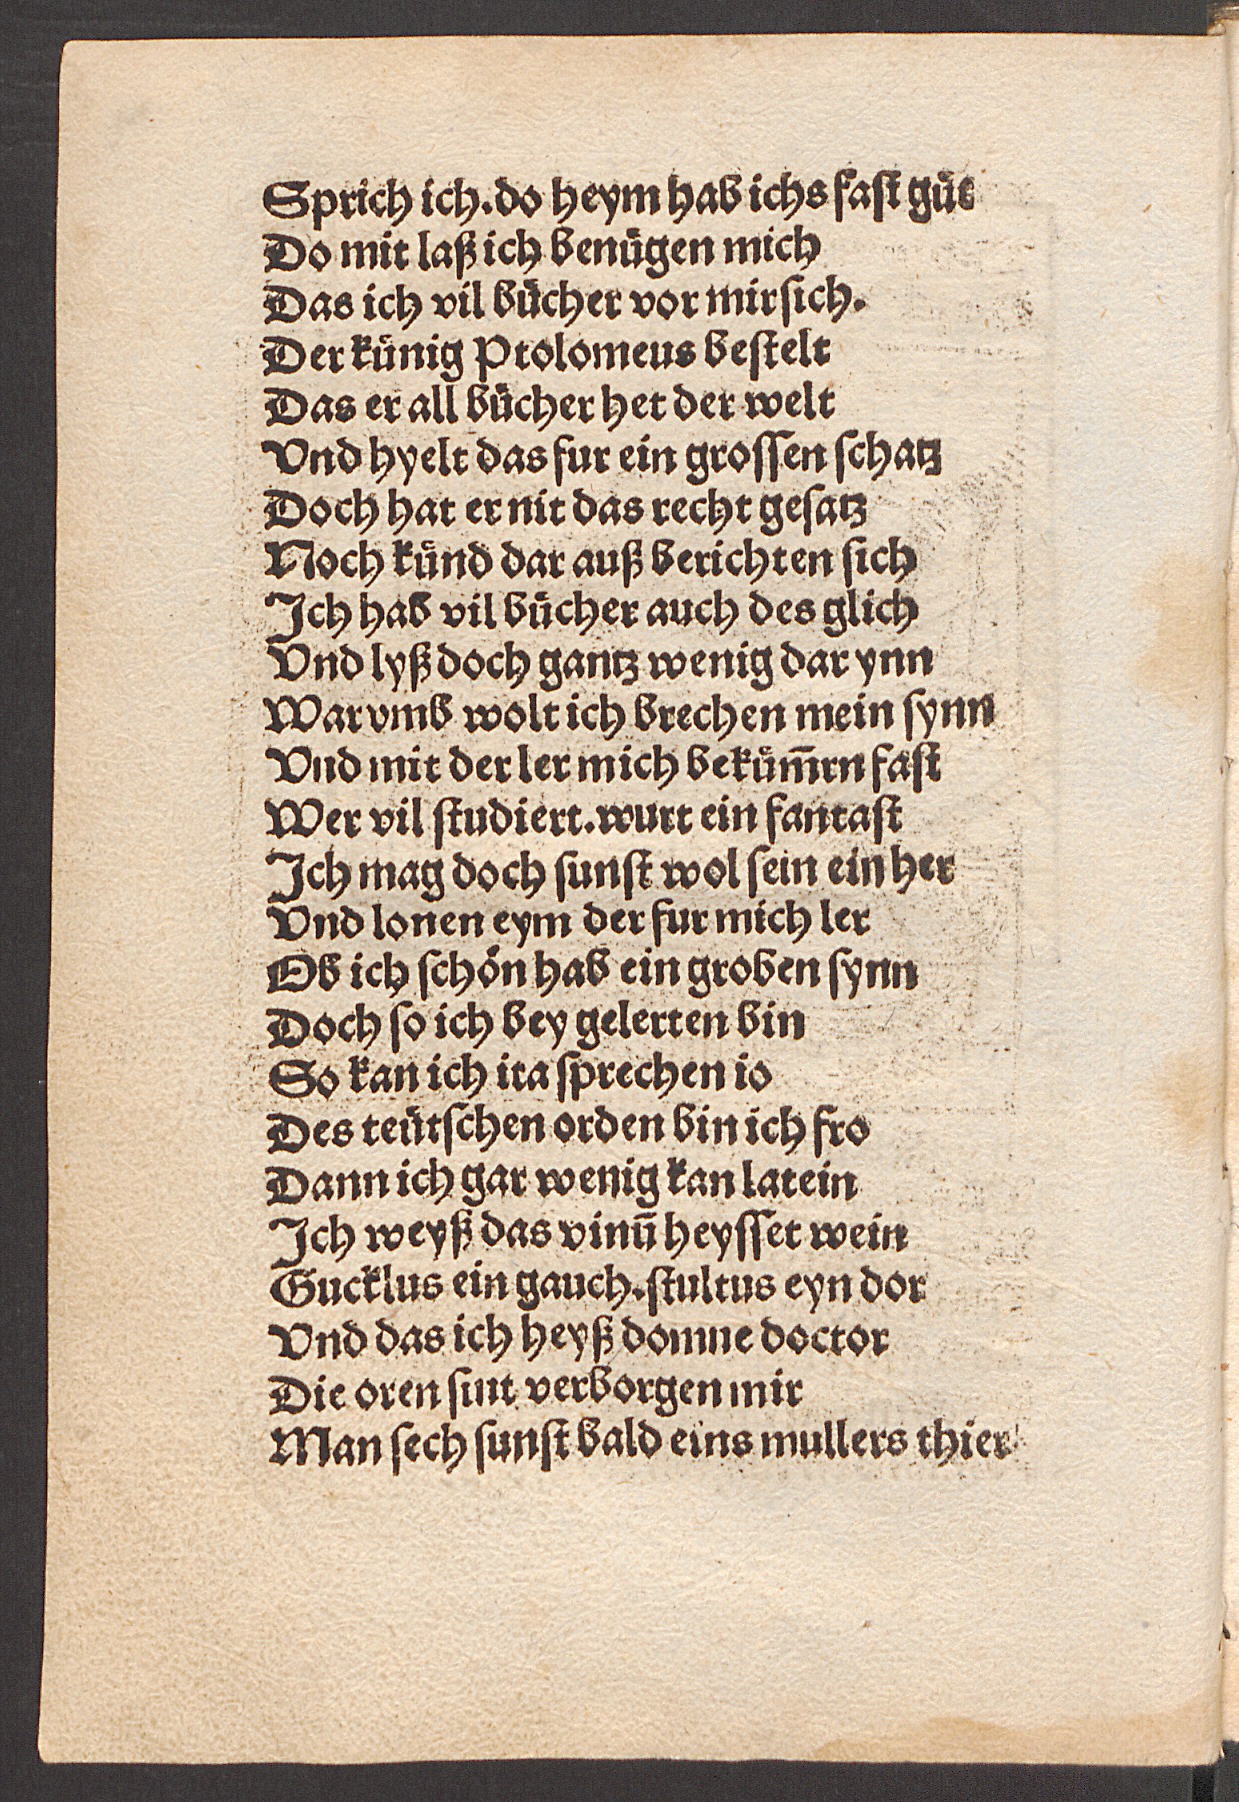 Sprich ich.do heym hab ichs fast güt
Do mit laß ich benügen mich
Das ich vil bücher vor mir sich.
Der künig Ptolomeus bestelt
Das er all bücher het der welt
Vnd hyelt das fur ein grossen schatz
Doch hat er nit das recht gesatz
Noch künd dar auß berichten sich
Ich hab vil bücher auch des glich
Vnd lyß doch gantz wenig dar ynn
War vmb wolt ich brechen mein synn
Vnd mit der ler mich beküm̄rn fast
Wer vil studiert.wurt ein fantast
Ich mag doch sunst wol sein ein her
Vnd lonen eym der fur mich ler
Ob ich schön hab ein groben synn
Doch so ich bey gelerten bin
So kan ich ita sprechen io
Des teütschen orden bin ich fro
Dann ich gar wenig kan latein
Ich weyß das vinū heysset wein
Gucklus ein gauch.stultus eyn dor
Vnd das ich heyß domne doctor
Die oren sint verborgen mir
Man sech sunst bald eins mullers thier